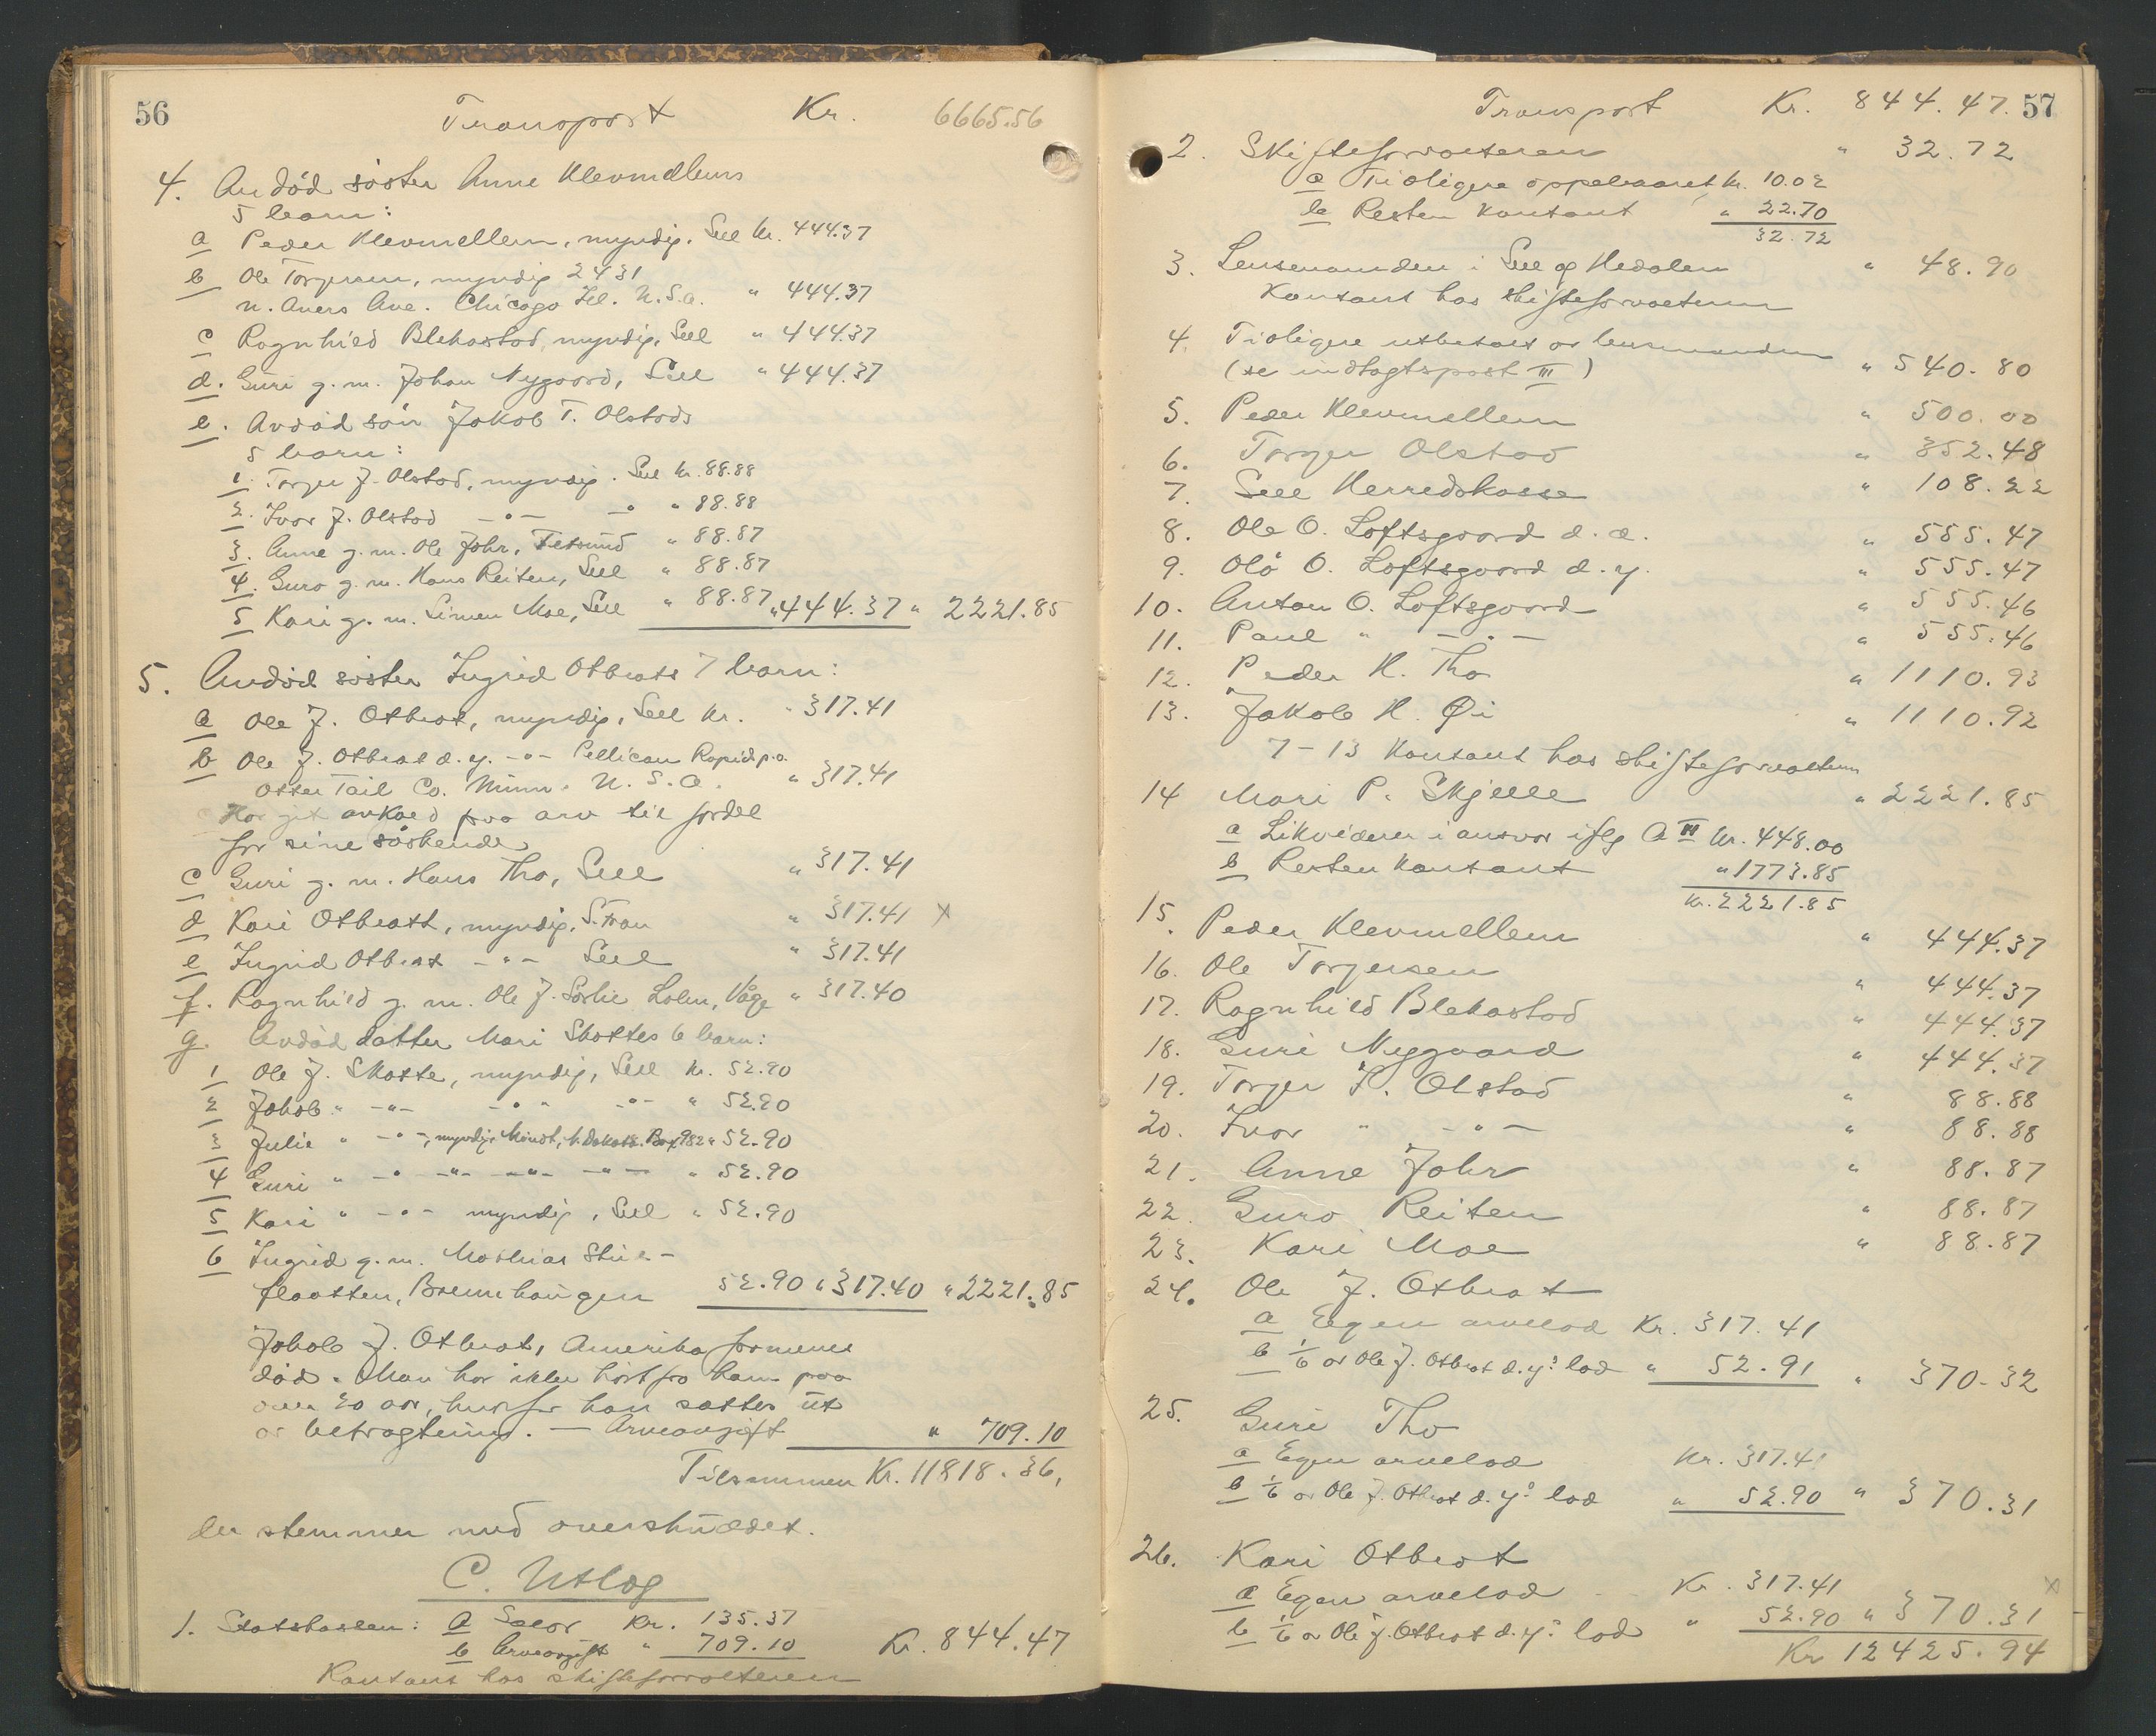 56
Transport Kr. 6665.56
4. Avdöd söster Anne Klevmellems
5 barn:
a Peder Klevmellem, myndig. Sell kr. 444.37
b Ole Torgersen, myndig 2431
N. Avers Ave. Chicago Ill. U.S.A. " 444.37
c Ragnhild Blekastad, myndig, Sell " 444.37
d. Guri g. m. Johan Nygaard, Sell " 444.37
e. Avdöd sön Jakob T. Olstads
5 barn:
1. Torger J. Olstad, myndig. Sell kr. 88.88
2. Ivar J. Olstad -"- -" " 88.88
3. Anne g. m. Ole Johr, " 88.87
4. Guro g. m. Hans Reiten, Sell " 88.87
5 Kari g. m. Simen Moe, Sell " 88.87 " 444.37 " 2221.85
5. Avdöd söster Ingrid Otbrats 7 barn:
a Ole J. Otbrat, myndig, Sell kr. " 317.41
b Ole J. Otbrat d.y. -"- Pellican Rapid p.o.
Otter Tail Co. Minn. U.S.A. " 317.41
Har git avkald paa arv til fordel
for sine söskende
c Guri g. m. Hans Tho, Sell " 317.41
d Kari Otbratt, myndig, S. Fron " 317.41 x
e Ingrid Otbrat -"- Sell " 317.41
f. Ragnhild g. m. Ole J. Sørlie Lalm, Våge " 317.40
g. Avdöd datter Mari Skottes 6 barn:
1 Ole J. Skotte, myndig, Sell kr. 52.90
2 Jakob " -"- -"- -"- " 52.90
3 Julie " -"-, myndig, Minot, N. Dakota. Box 982 " 52.90
4 Guri " -"- -"- -"- -"- " 52.90
5 Kari " -"- myndig, Sell " 52.90
6 Ingrid g. m. Mathias Stue-
flaatten, Brennhaugen 52.90 " 317.40 " 2221.85
Jakob J. Otbrat, Amerika formenes
död. Man har ikke hört fra ham paa
over 20 aar, hvorfor han sættes ut
av betragtning. — Arveavgift " 709.10
Tilsammen Kr. 11818.36,
der stemmer med overskuddet.
C. Utlæg
1. Statskassen: a Salær Kr. 135.37
b Arveavgift " 709.10 Kr. 844.47
Kontant hos skifteforvalteren
57
Transport Kr. 844.47.
2. Skifteforvalteren " 32.72
a Tidligere oppebaaret kr. 10.02
b Resten kontant " 22.70
32.72
3. Lensmanden i Sell og Hedalen " 48.90
Kontant hos skifteforvalteren
4. Tidligere utbetalt av lensmanden
(se indtægtspost III) " 540.80
5. Peder Klevmellem " 500.00
6. Torger Olstad " 852.48
7. Sell Herredskasse " 108.22
8. Ole O. Loftsgaard d. æ. " 555.47
9. Ole O. Loftsgaard d. y. " 555.47
10. Anton O. Loftsgaard " 555.46
11. Paul " -"- " 555.46
12. Peder H. Tho " 1110.93
13. Jakob H. Øi " 1110.92
7-13 Kontant hos skifteforvalteren
14 Mari P. Skjelle " 2221.85
a Likvideres i ansvar iflg A II kr. 448.00
b Resten kontant " 1773.85
kr. 2221.85
15. Peder Klevmellem " 444.37
16. Ole Torgersen " 444.37
17. Ragnhild Blekastad " 444.37
18. Guri Nygaard " 444.37
19. Torger J. Olstad " 88.88
20. Ivar " -"- " 88.88
21. Anne Johr " 88.87
22. Guro Reiten " 88.87
23. Kari Moe " 88.87
24. Ole J. Otbrat
a Egen arvelod Kr. 317.41
b 1/6 av Ole J. Otbrat d.y.s lod " 52.91 " 370.32
25. Guri Tho
a Egen arvelod Kr. 317.41
b 1/6 av Ole J. Otbrat d.y.s lod " 52.90 " 370.31
26. Kari Otbrat
a Egen arvelod Kr. 317.41 x
b 1/6 av Ole J. Otbrat d.y.s lod " 52.90 " 370.31
Kr 12425.94